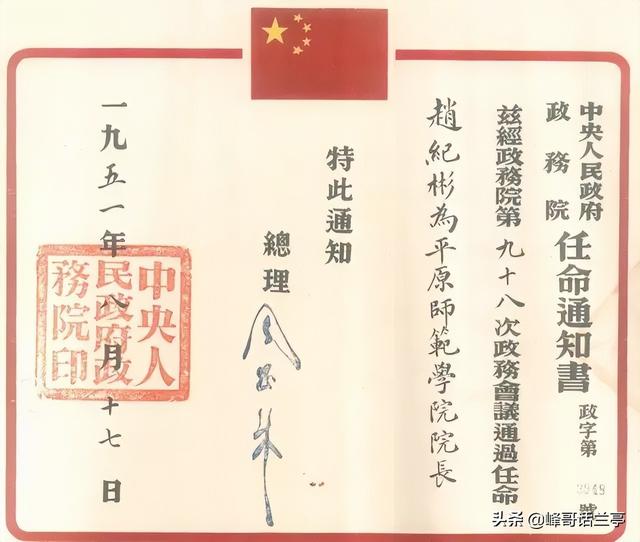 中央人民政府
政務院
任命通知書
政字第3949號
茲經政務院第九十八次政務會議通過任命
趙紀彬為平原師範學院院長
特此通知
總理
周恩來
一九五一年八月十七日
中央人民政府政務院印
头条 @峰哥话兰亭